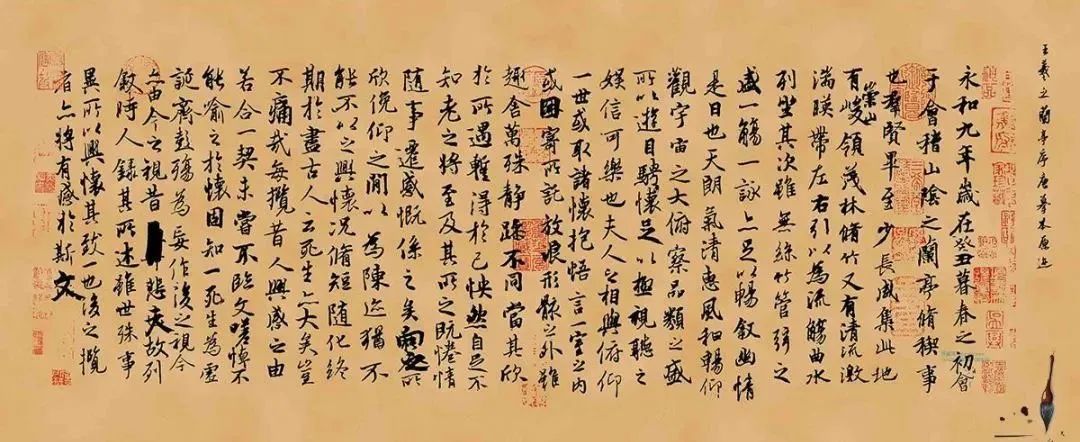 王羲之蘭亭序唐摹本原迹
永和九年歲在癸丑暮春之初會
于會稽山陰之蘭亭脩禊事
也群賢畢至少長咸集此地
有崇山峻領茂林脩竹又有清流激
湍暎帶左右引以為流觴曲水
列坐其次雖無絲竹管弦之
盛一觴一詠亦足以暢敘幽情
是日也天朗氣清惠風和暢仰
觀宇宙之大俯察品類之盛
所以遊目騁懷足以極視聽之
娛信可樂也夫人之相與俯仰
一世或取諸懷抱悟言一室之內
或因寄所託放浪形骸之外雖
趣舍萬殊靜躁不同當其欣
於所遇暫得於己怏然自足不
知老之將至及其所之既惓情
隨事遷感慨係之矣向之所
欣俛仰之閒以為陳迹猶不
能不以之興懷況脩短隨化終
期於盡古人云死生亦大矣豈
不痛哉每攬昔人興感之由
若合一契未嘗不臨文嗟悼不
能喻之於懷固知一死生為虛
誕齊彭殤為妄作後之視今
亦由今之視昔悲夫故列
敘時人錄其所述雖世殊事
異所以興懷其致一也後之攬
者亦將有感於斯文